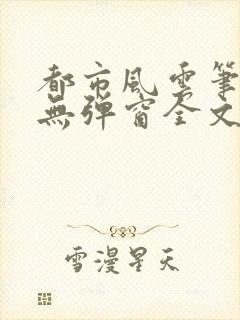 都市風雲筆
無彈窗全文
雪漫星天